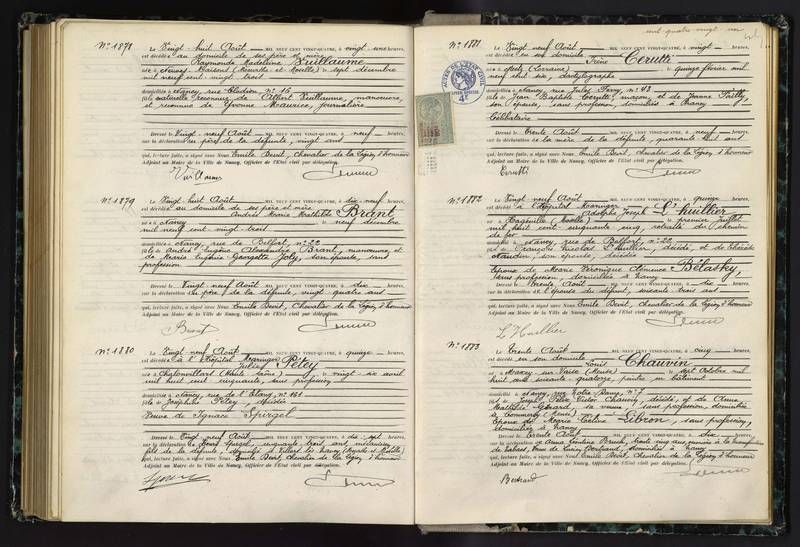 N° 1878
Le Vingt-huit Août MIL NEUF CENT VINGT-QUATRE, à vingt-une heures,
est décédée au domicile de ses père et mère
Raymonde Madeleine Vuillaume
née à Maisons (Meurthe et Moselle) le sept décembre
mil neuf cent vingt trois
domiciliée à Nancy, rue Blodion n° 16
fille naturelle reconnue de Albert Vuillaume, manoeuvre,
et reconnue de Yvonne Maurice, journalière
Dressé le Vingt neuf Août MIL NEUF CENT VINGT-QUATRE, à neuf heures,
sur la déclaration du père de la défunte, vingt ans
qui, lecture faite, a signé avec Nous Emile Bevit, Chevalier de la Légion d'honneur
Adjoint au Maire de la Ville de Nancy, Officier de l'Etat civil par délégation.
Vuillaume
N° 1879
Le Vingt-huit Août MIL NEUF CENT VINGT-QUATRE, à dix-neuf heures,
est décédée au domicile de ses père et mère
Andrée Marie Mathilde Brant
née à Nancy le neuf décembre
mil neuf cent vingt trois
domiciliée à Nancy, rue de Belfort, n° 22
fille de André Eugène Alexandre Brant, manoeuvre, et
de Marie Eugénie Georgette Joly, son épouse, sans
profession
Dressé le Vingt neuf Août MIL NEUF CENT VINGT-QUATRE, à dix heures,
sur la déclaration du père de la défunte, vingt quatre ans
qui, lecture faite, a signé avec Nous Emile Bevit, Chevalier de la Légion d'honneur
Adjoint au Maire de la Ville de Nancy, Officier de l'Etat civil par délégation.
Brant
N° 1880
Le Vingt neuf Août MIL NEUF CENT VINGT-QUATRE, à quinze heures,
est décédée à l'Hôpital Maringer
Julie Petey
née à Chalonvillars (Haute Saône) le vingt-six avril
mil huit cent cinquante, sans profession
domiciliée à Nancy, rue de l'Etang n° 161
fille de Joséphine Petey, décédée
Veuve de Ignace Spirgel
Dressé le Vingt neuf Août MIL NEUF CENT VINGT-QUATRE, à dix-sept heures,
sur la déclaration de Spirgel, cinquante trois ans,
fils de la défunte, domicilié à Villers les Nancy (Meurthe et Moselle)
qui, lecture faite, a signé avec Nous Emile Bevit, Chevalier de la Légion d'honneur
Adjoint au Maire de la Ville de Nancy, Officier de l'Etat civil par délégation.
N° 1881
Le Vingt neuf Août MIL NEUF CENT VINGT-QUATRE, à vingt heures,
est décédée en son domicile
Irène Cerutti
née à (Lorraine) le quinze février mil
neuf cent six, dactylographe
domiciliée à Nancy, rue Jules Ferry, n° 43
fille de Jean Baptiste Cerutti, maçon, et de Jeanne
son épouse, sans profession, domiciliés à Nancy
Célibataire
Dressé le Trente Août MIL NEUF CENT VINGT-QUATRE, à neuf heures,
sur la déclaration de la mère de la défunte, quarante-huit ans
qui, lecture faite, a signé avec Nous Emile Bevit, Chevalier de la Légion d'honneur
Adjoint au Maire de la Ville de Nancy, Officier de l'Etat civil par délégation.
Cerutti
N° 1882
Le Vingt neuf Août MIL NEUF CENT VINGT-QUATRE, à quinze heures,
est décédé à l'Hôpital Maringer
Adolphe Joseph L'huillier
né à Hagéville (Moselle) le premier juillet
mil huit cent cinquante cinq, retraité du chemin
de fer
domicilié à Nancy, rue de Belfort, n° 22
fils de François Nicolas L'huillier, décédé, et de
son épouse, décédée
époux de Marie Véronique Clémence Bélasky,
sans profession, domiciliée à Nancy
Dressé le Trente Août MIL NEUF CENT VINGT-QUATRE, à dix heures,
sur la déclaration de l'épouse du défunt, soixante trois ans
qui, lecture faite, a signé avec Nous Emile Bevit, Chevalier de la Légion d'honneur
Adjoint au Maire de la Ville de Nancy, Officier de l'Etat civil par délégation.
L'Huillier
N° 1883
Le Trente Août MIL NEUF CENT VINGT-QUATRE, à cinq heures,
est décédé en son domicile
Louis Chauvin
né à Maxey sur Vaise (Meuse) le sept Octobre mil
huit cent soixante-quatorze, peintre en bâtiment
domicilié à Nancy, rue Notre Dame n° 7
fils de Joseph Félix Victor Chauvin, décédé, et de Anne
Mathilde Génard, sa veuve, sans profession, domiciliée
à Commercy (Meuse)
époux de Marie Céline Libron, sans profession,
domiciliée à Nancy
Dressé le Trente Août MIL NEUF CENT VINGT-QUATRE, à dix heures,
qui, lecture faite, a signé avec Nous Emile Bevit, Chevalier de la Légion d'honneur
Adjoint au Maire de la Ville de Nancy, Officier de l'Etat civil par délégation.
Bertrand